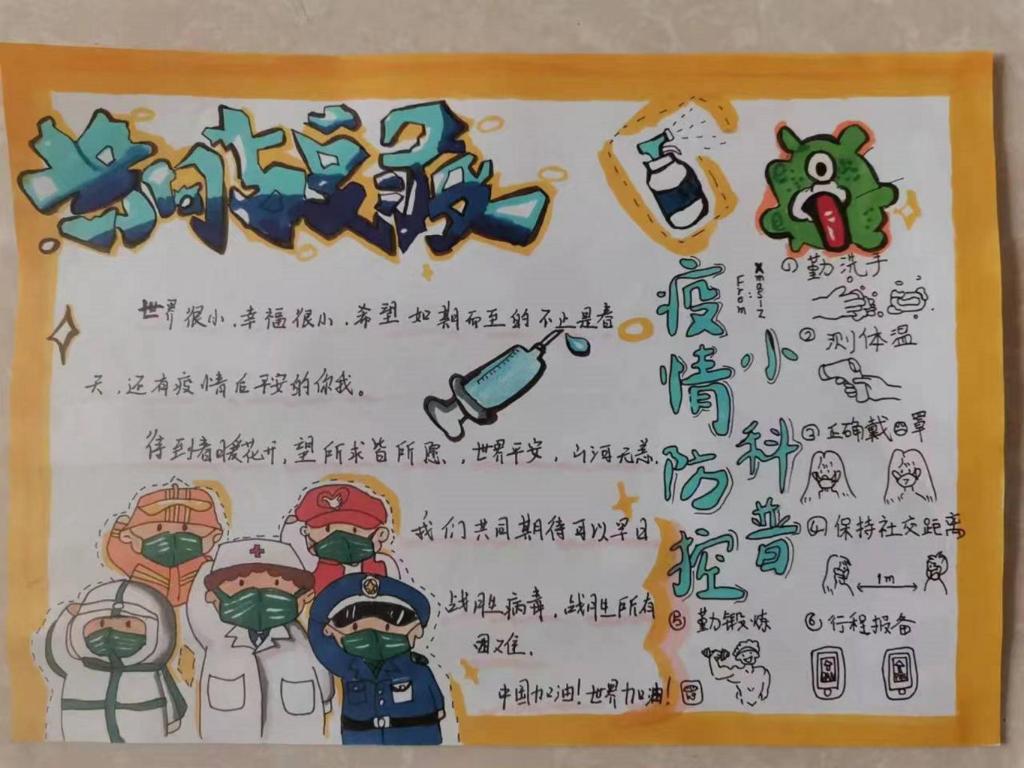 共同抗疫
世界很小，幸福很小，希望如期而至的不止是春
天，还有疫情后平安的你我。
待到春暖花开，望所求皆所愿，世界平安，山河无恙.
我们共同期待可以早日
战胜病毒，战胜所有
困难.
中国加油！世界加油！
疫情防控
小科普
From
①勤洗手
②测体温
③正确戴口罩
④保持社交距离
1m
⑤勤锻炼
⑥行程报备